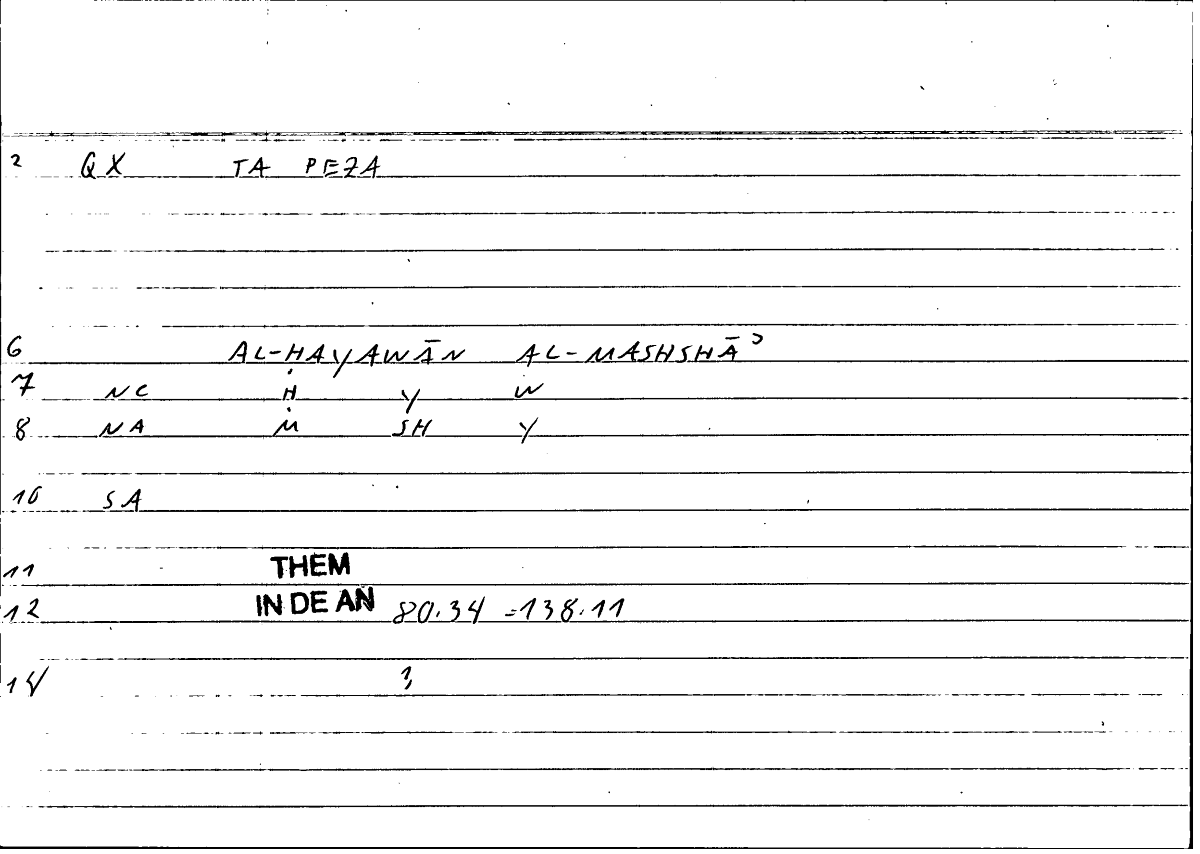 2 QX TA PEZA
6 AL-ḤAYAWĀN AL-MASHSHĀʾ
7 NC Ḥ Y W
8 NA M SH Y
10 SA
11 THEM
12 IN DE AN 80.34 =138.11
14